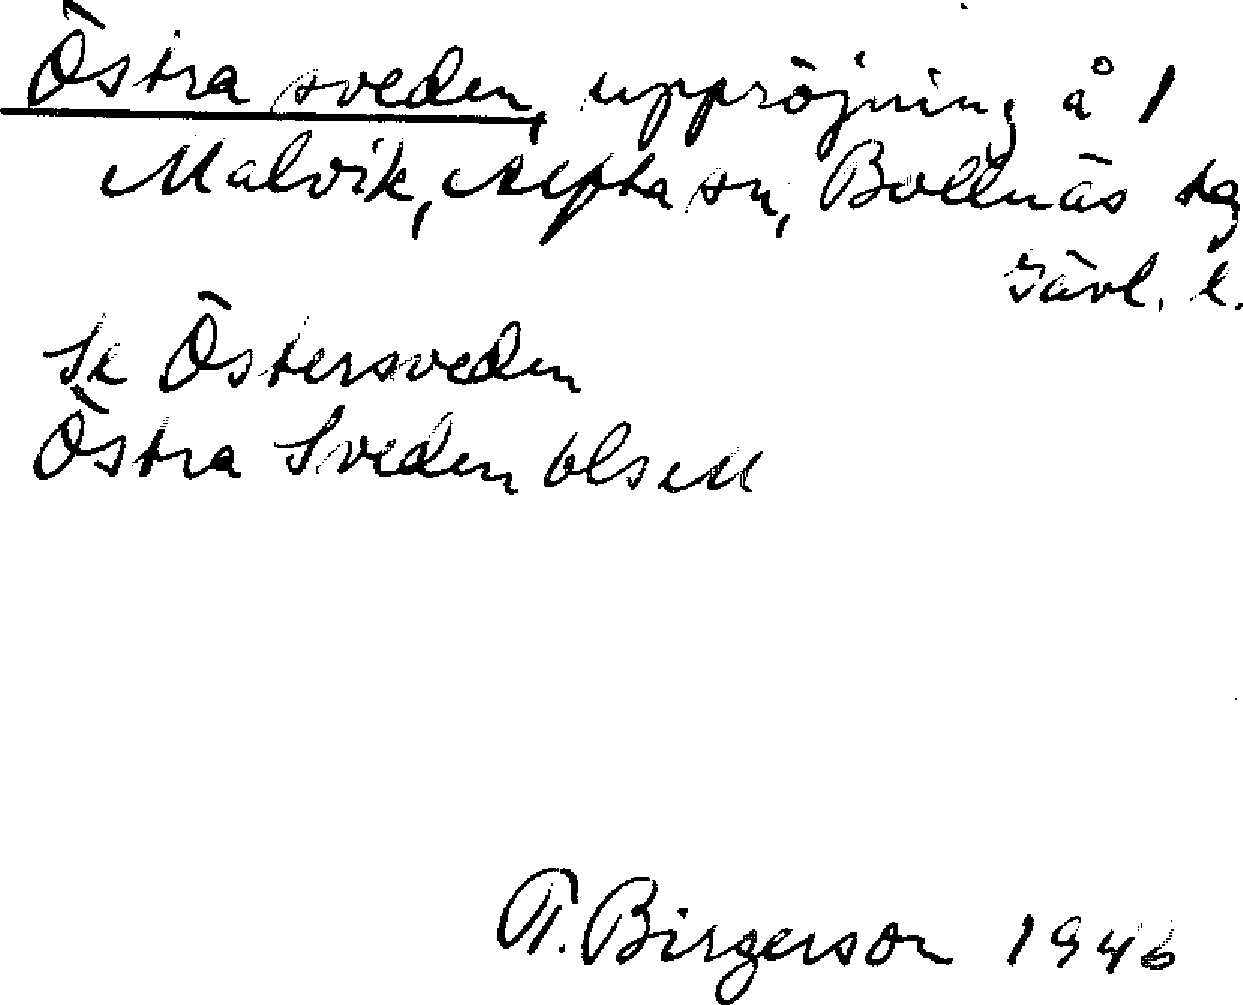 Östra sveden, uppröjning å 1
Malvik, Alfta sn, Bollnäs tg
Gävl. l.
Se Östersveden
Östra Sveden
T. Birgerson 1946